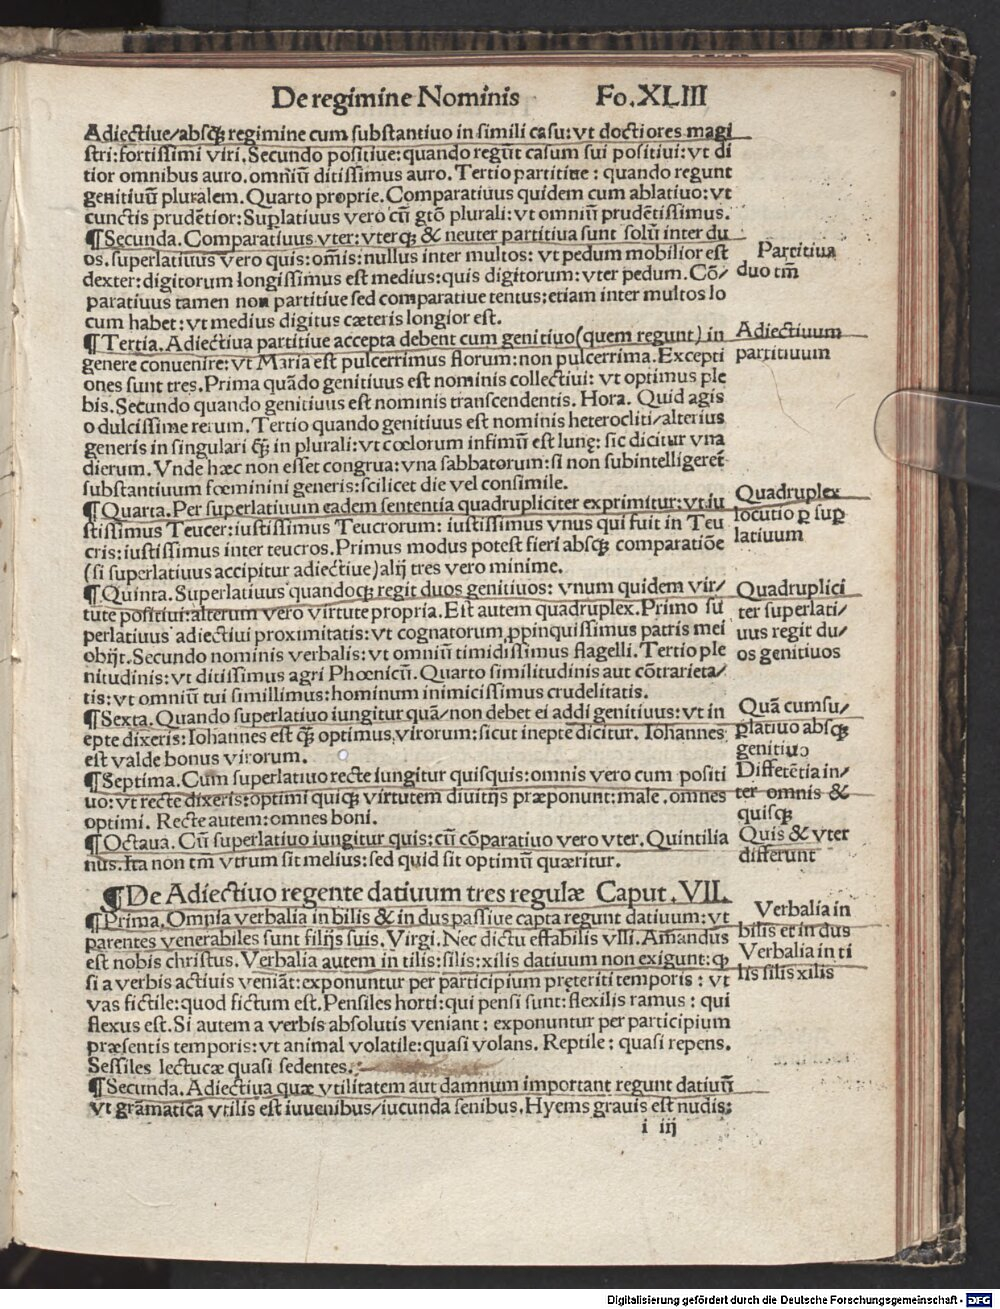 De regimine Nominis Fo.XLIII
Adiectiue/absq; regimine cum substantiuo in simili casu: vt doctiores magi
stri: fortissimi viri. Secundo positiue: quando regūt casum sui positiui: vt di
tior omnibus auro. omniū ditissimus auro. Tertio partitiue: quando regunt
genitiuū pluralem. Quarto proprie. Comparatiuus quidem cum ablatiuo: vt
cunctis prudētior: Suplatiuus vero cū gtō plurali: vt omniū prudētissimus.
¶Secunda. Comparatiuus vter: vterq; & neuter partitiua sunt solū inter du
os. superlatiuus vero quis: omīs: nullus inter multos: vt pedum mobilior est
dexter: digitorum longissimus est medius: quis digitorum: vter pedum. Cō/
paratiuus tamen non partitiue sed comparatiue tentus: etiam inter multos lo
cum habet: vt medius digitus cæteris longior est.
Partitiua
duo tm̄
¶Tertia. Adiectiua partitiue accepta debent cum genitiuo (quem regunt) in
genere conuenire: vt Maria est pulcerrimus florum: non pulcerrima. Excepti
ones sunt tres. Prima quādo genitiuus est nominis collectiui: vt optimus ple
bis. Secundo quando genitiuus est nominis transcendentis. Hora. Quid agis
o dulcissime rerum. Tertio quando genitiuus est nominis heterocliti/alterius
generis in singulari q̄; in plurali: vt cœlorum infimū est lunę: sic dicitur vna
dierum. Vnde hæc non esset congrua: vna sabbatorum: si non subintelligeret̄
substantiuum fœminini generis: scilicet die vel consimile.
Adiectiuum
partitiuum
¶Quarta. Per superlatiuum eadem sententia quadrupliciter exprimitur: vt iu
stissimus Teucer: iustissimus Teucrorum: iustissimus vnus qui fuit in Teu
cris: iustissimus inter teucros. Primus modus potest fieri absq; comparatiōe
(si superlatiuus accipitur adiectiue) alij tres vero minime.
Quadruplex
locutio ꝑ suꝑ
latiuum
¶Quinta. Superlatiuus quandoq; regit duos genitiuos: vnum quidem vir/
tute positiui: alterum vero virtute propria. Est autem quadruplex. Primo su
perlatiuus adiectiui proximitatis: vt cognatorum ꝓpinquissimus patris mei
obijt. Secundo nominis verbalis: vt omniū timidissimus flagelli. Tertio ple
nitudinis: vt ditissimus agri Phœnicū. Quarto similitudinis aut cōtrarieta/
tis: vt omniū tui simillimus: hominum inimicissimus crudelitatis.
Quadruplici
ter superlati/
uus regit du/
os genitiuos
¶Sexta. Quando superlatiuo iungitur quā/non debet ei addi genitiuus: vt in
epte dixeris: Iohannes est q̄; optimus virorum: sicut inepte dicitur. Iohannes
est valde bonus virorum.
Quā cum su/
ꝑlatiuo absq;
genitiuo
¶Septima. Cum superlatiuo recte iungitur quisquis: omnis vero cum positi
uo: vt recte dixeris: optimi quiq; virtutem diuitijs præponunt: male. omnes
optimi. Recte autem: omnes boni.
Differētia in/
ter omnis &
quisq;
¶Octaua. Cū superlatiuo iungitur quis: cū cōparatiuo vero vter. Quintilia
nus. Ita non tm̄ vtrum sit melius: sed quid sit optimū quæritur.
Quis & vter
differunt
¶De Adiectiuo regente datiuum tres regulæ Caput. VII.
¶Prima. Omnia verbalia in bilis & in dus passiue capta regunt datiuum: vt
parentes venerabiles sunt filijs suis. Virgi. Nec dictu effabilis vlli. Amandus
est nobis christus. Verbalia autem in tilis: silis: xilis datiuum non exigunt: ꝙ
si a verbis actiuis veniāt: exponuntur per participium pręteriti temporis: vt
vas fictile: quod fictum est. Pensiles horti: qui pensi sunt: flexilis ramus: qui
flexus est. Si autem a verbis absolutis veniant: exponuntur per participium
præsentis temporis: vt animal volatile: quasi volans. Reptile: quasi repens.
Sessiles lectucæ quasi sedentes.
Verbalia in
bilis et in dus
Verbalia in ti
lis silis xilis
¶Secunda. Adiectiua quæ vtilitatem aut damnum important regunt datiuū
vt grāmatica vtilis est iuuenibus/iucunda senibus. Hyems grauis est nudis:
i iij
Digitalisierung gefördert durch die Deutsche Forschungsgemeinschaft - DFG